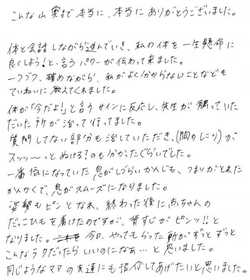 こんな山奥まで本当に、本当に ありがとうございました。
体と会話しながら進んでいき、私の体を一生懸命に
良くしよう!と、言う パワーが伝わって来ました。
一つ一つ、確かめながら、私がよく分からないことなども
ていねいに教えてくれました。
体が「今だよ!」と言う サインに反応し、先生が触っていた
だいた所が 治って行ってました。
質問してない部分も治していただき、(間のしこり)が
スッッ〜っとぬける!のも分かったくらいでした。
一番気になっていた息がしづらいかんじも、つまりがとれた
かんかくで、息がスムーズになりました。
姿勢もピンとなあ、終わった後に赤ちゃんの
だっこひもを着けたのですが、背すじが ピンッ!!と
なりました。今日、やってもらった所が ずっと ずっと
こんなラクだったら いいのになぁ… と 思いました。
同じようなママの友達にも紹介してあげたいと思いました。